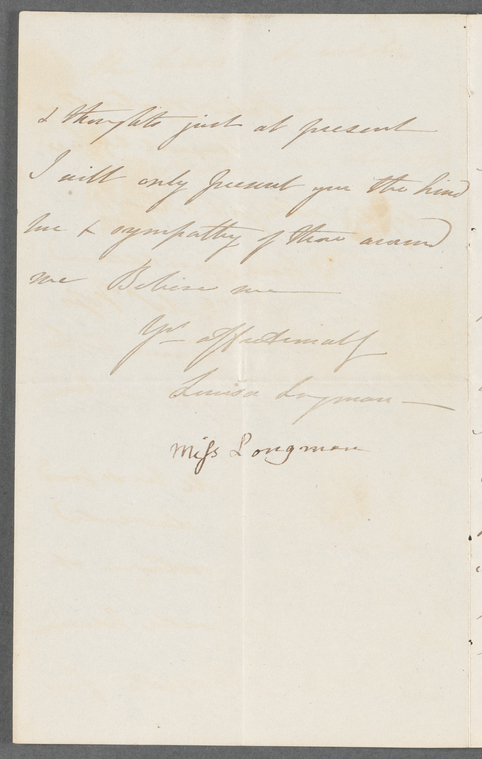 & thoughts just at present
I will only present you the kind
love & sympathy of those around
me Believe me
Yrs affectionately
Louisa Longman
Miss Longman